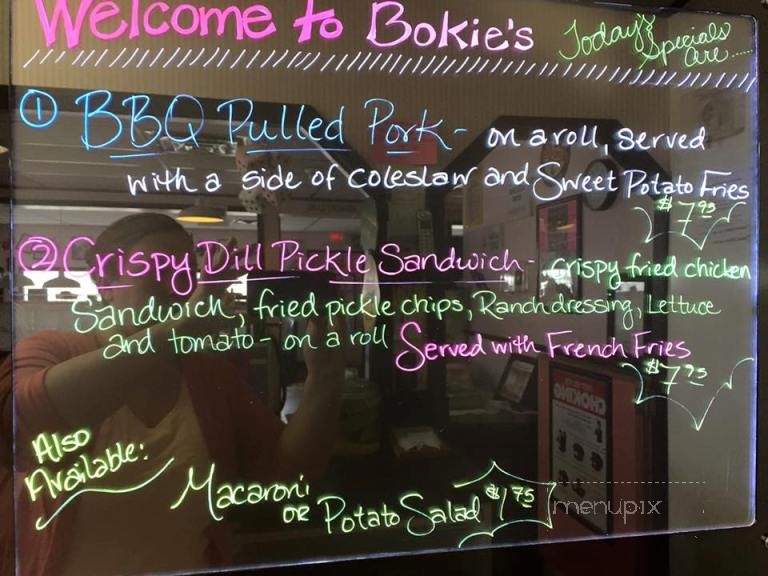 Welcome to Bokie's
Today's
Specials
are.....
① BBQ Pulled Pork - on a roll, served
with a side of coleslaw and Sweet Potato Fries
$7.95
② Crispy Dill Pickle Sandwich - crispy fried chicken
Sandwich, fried pickle chips, Ranch dressing, Lettuce
and tomato - on a roll Served with French Fries
$7.75
CHOKING
Also
Available:
Macaroni
or Potato Salad $1.75
menupix